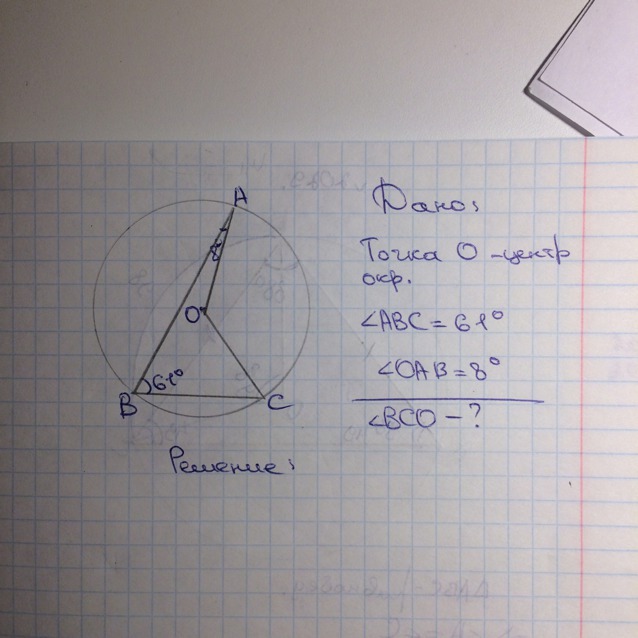 A
8
Дано:
Точка O - центр
окр.
O
∠ABC = 61°
∠OAB = 8°
61°
B
C
∠BCO - ?
Решение: